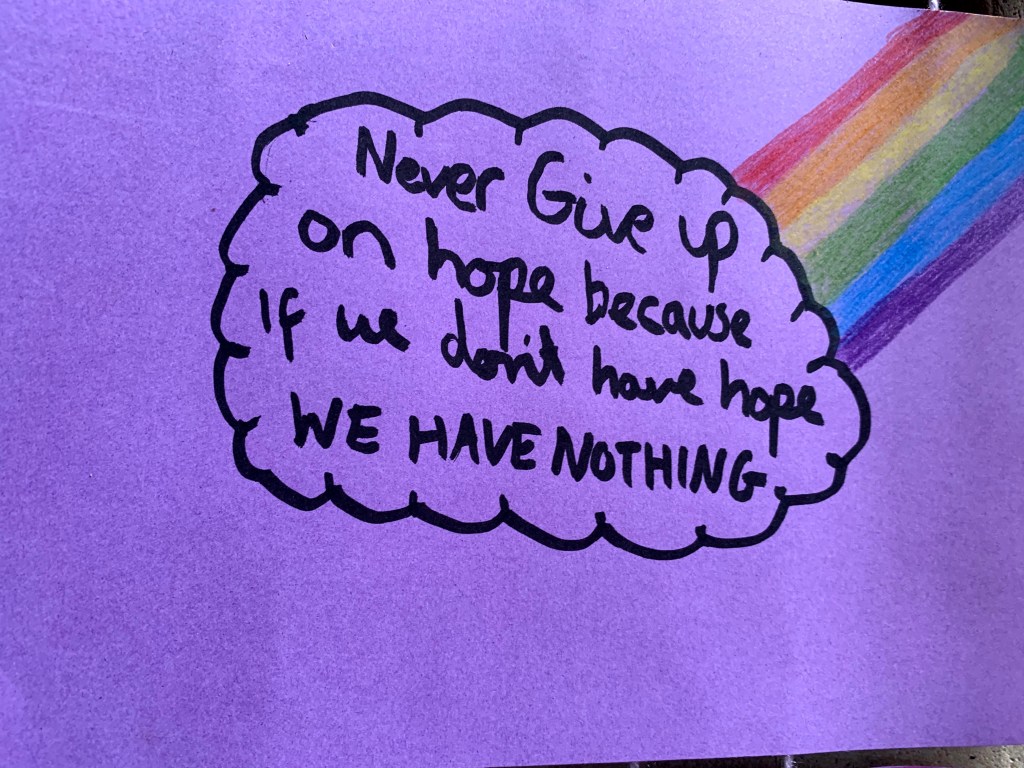 Never Give up
on hope because
If we don't have hope
WE HAVE NOTHING.